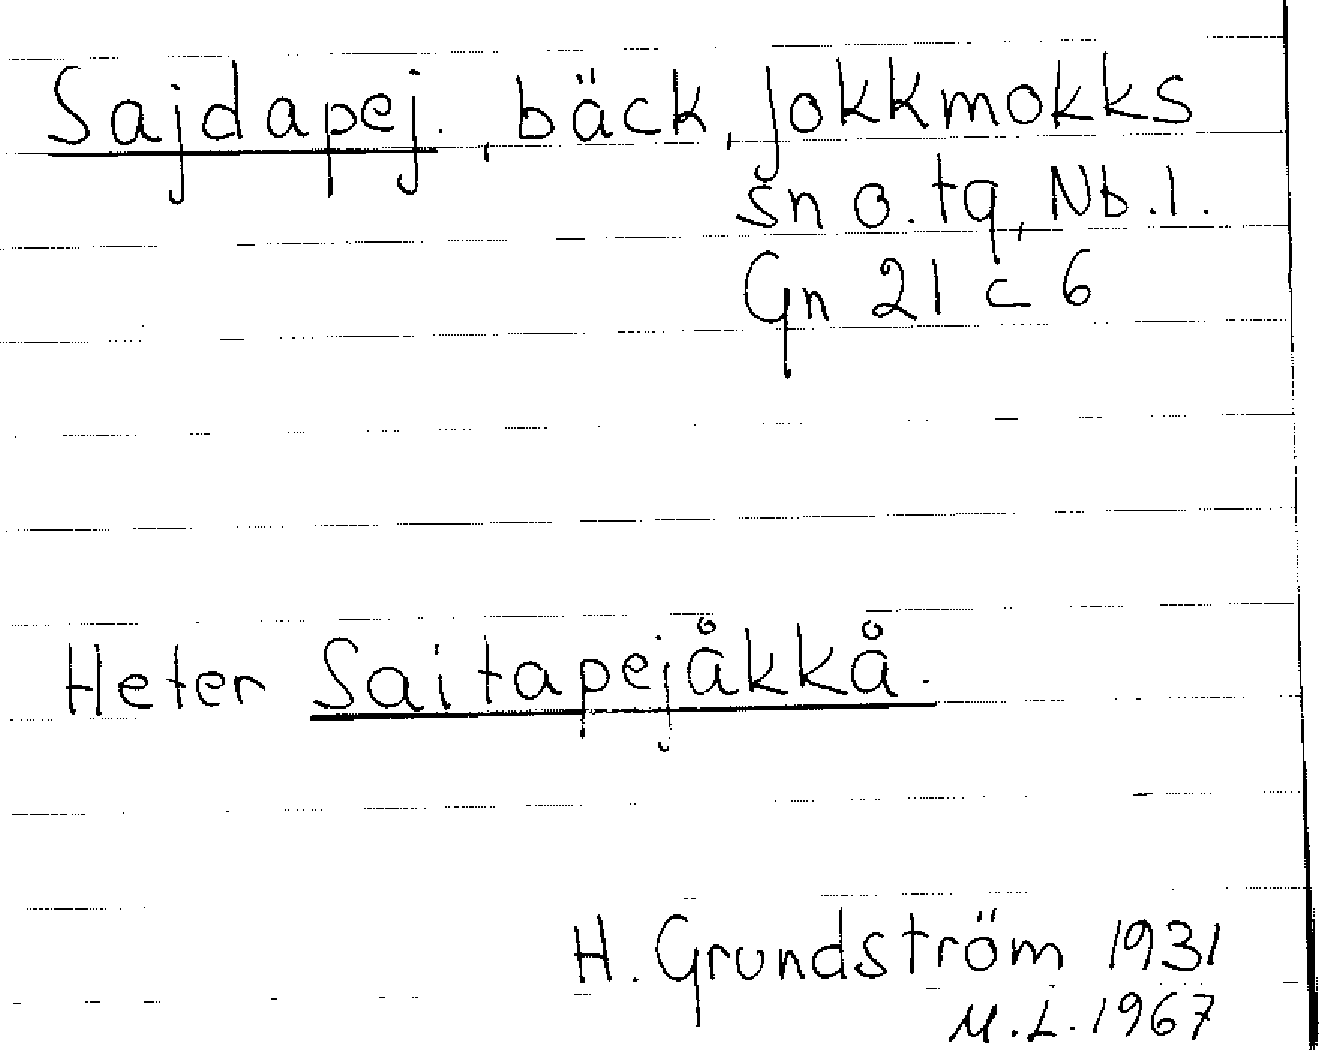 Sajdapej., bäck, Jokkmokks
sn o. tg, Nb.l.
Gn 21 c 6
Heter Saitapejåkkå.
H. Grundström 1931
M.L. 1967